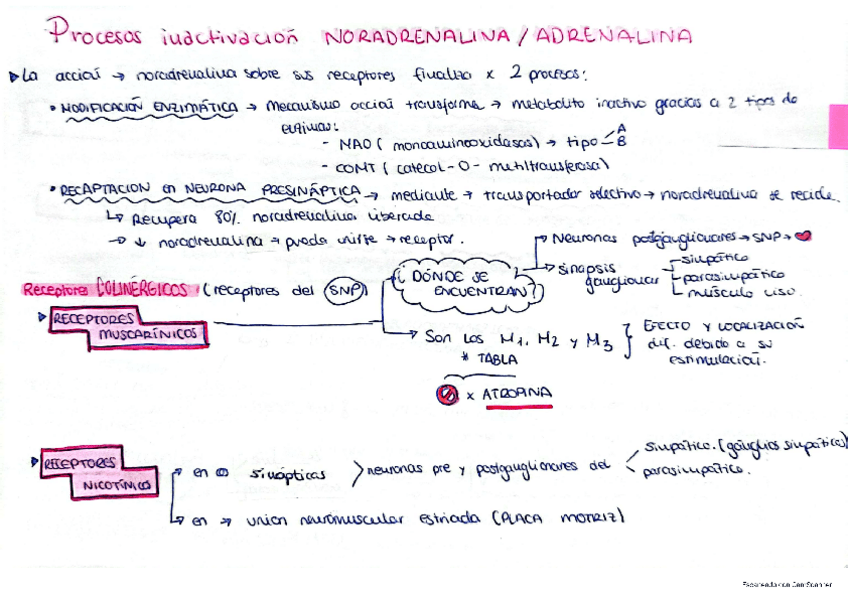 Procesos inactivación NORADRENALINA/ADRENALINA
La acción → noradrenalina sobre sus receptores finaliza x 2 procesos:
• MODIFICACIÓN ENZIMÁTICA → mecanismo acción transforma → metabolito inactivo gracias a 2 tipos de
enzimas:
- MAO (monoaminooxidasas) → tipo A B
- COMT (catecol-O-metiltransferasa)
• RECAPTACIÓN en NEURONA PRESINÁPTICA → mediante → transportador selectivo → noradrenalina se recicla.
↳ Recupera 80% noradrenalina liberada
→ ↓ noradrenalina → pueda unirse → receptor.
Receptores COLINÉRGICOS (receptores del SNP)
RECEPTORES
MUSCARÍNICOS
¿DÓNDE SE
ENCUENTRAN?
Neuronas postganglionares → SNP →
Sinapsis
ganglionar
simpático
parasimpático
músculo liso.
Son los M1, M2 y M3
* TABLA
EFECTO Y LOCALIZACIÓN
dif. debido a su
estimulación.
x ATROPINA
RECEPTORES
NICOTÍNICO
en sinápticas
neuronas pre y postganglionares del
simpático. (ganglios simpático)
parasimpático.
en → unión neuromuscular estriada (PLACA MOTRIZ)
Escaneado con CamScanner